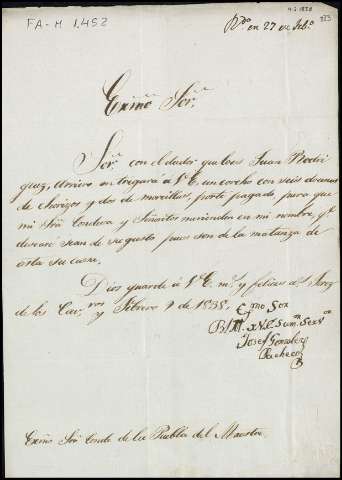 FA-M 1.452
4-2 1838
323
Rdo en 27 de Febo.
Exmo Sor.
Sor. con el dador que lo es Juan Rodri
guez, Arriero entregará á V.E. un corcho con seis docenas
de chorizos y dos de morcillas, porte pagado, para que
mi Sra Condesa y Señoritos merienden en mi nombre, qe
desean sean de su gusto pues son de la matanza de
esta su casa.
Dios guarde á V.E. ms. y felices as. Jerez
de los Cavros y Febrero 9 de 1838.
Exmo Sor
B L M. a V.E. Su mor Servor
Josef Gonzalez
Pacheco
Exmo Sor Conde de la Puebla del Maestre.